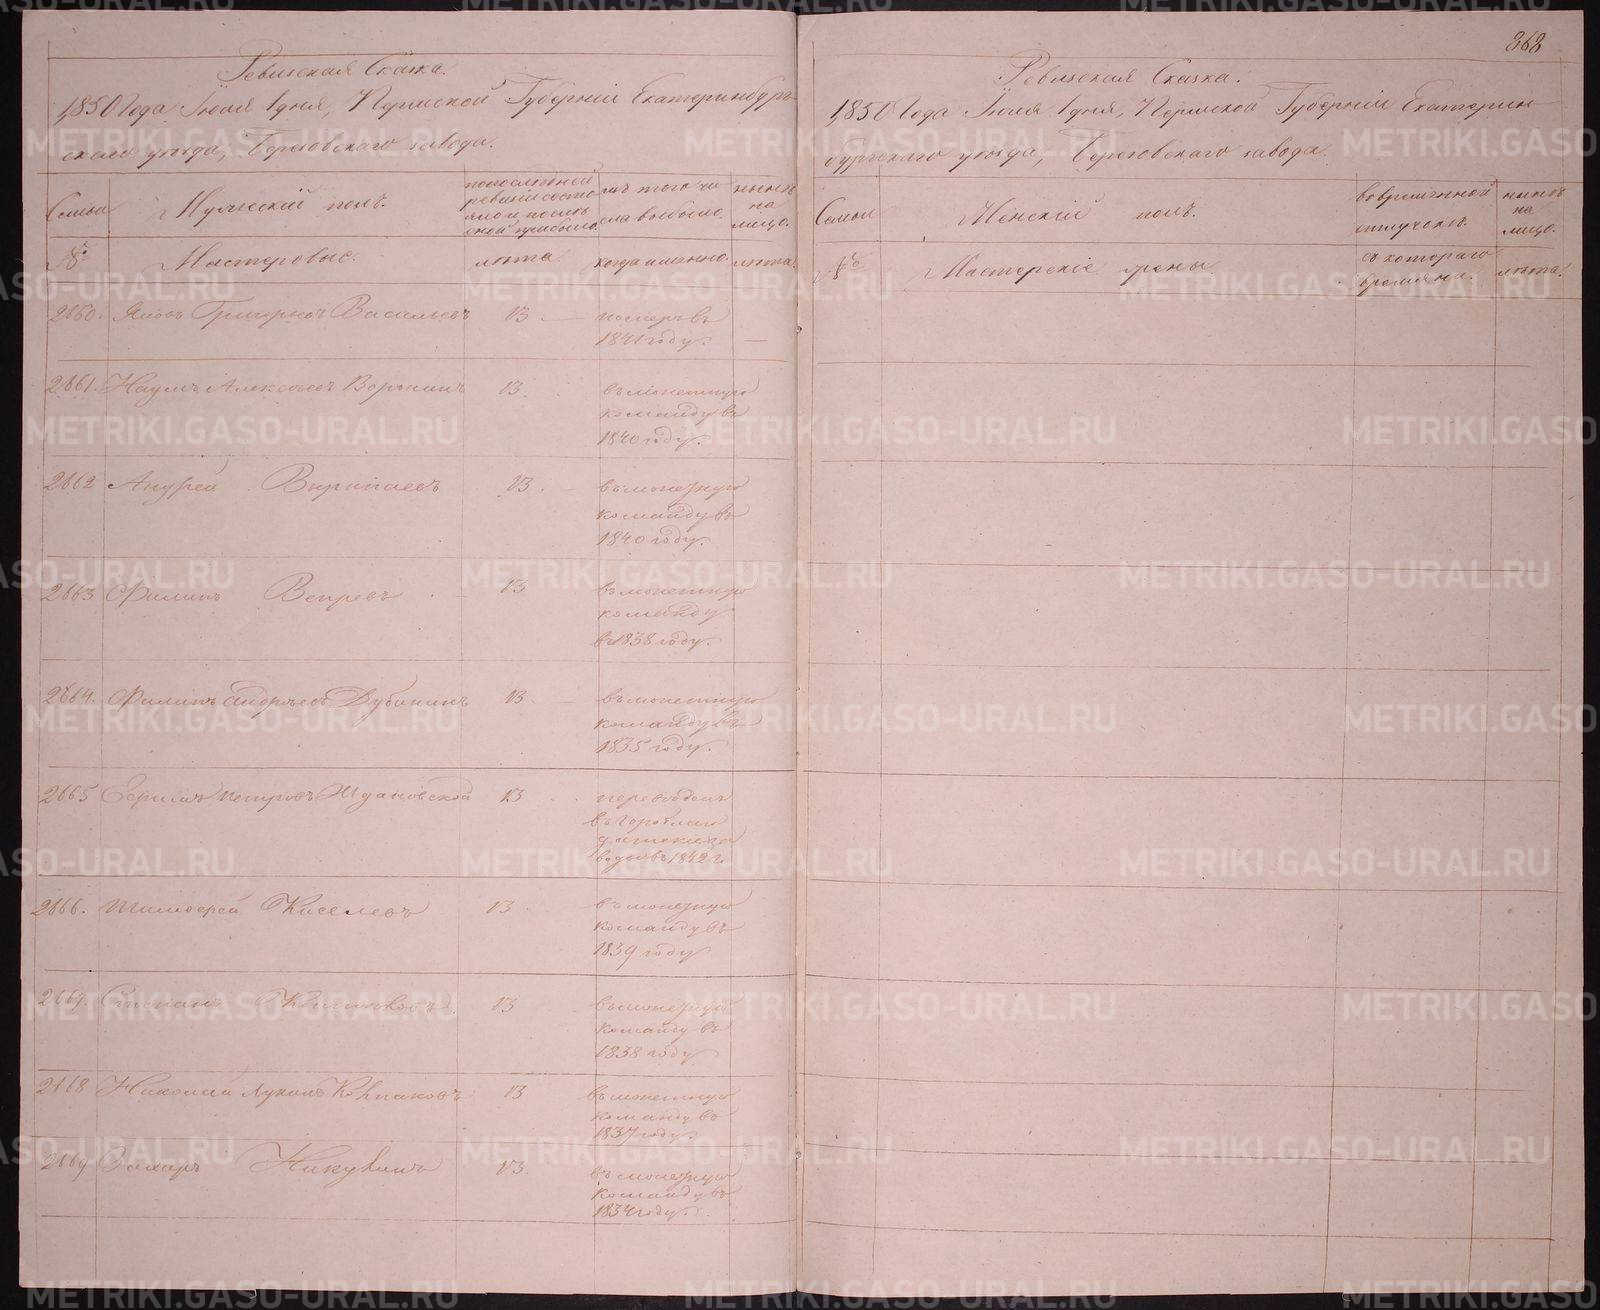 868
Ревизская Сказка.
1850 года Июля 1 дня, Пермской Губернии Екатеринбург-
скаго уезда, Березовскаго завода.
Семьи
Мужеский полъ.
по последней
ревизии состо
яло и после
оной прибыло.
изъ того чи
сла выбыло.
ныне
на
лицо.
№
Мастеровые.
лета
когда именно.
лета.
2660. Яковъ Григорьевъ Васильевъ 13 — померъ въ
1841 году. —
2661. Наумъ Алексеевъ Воронинъ 13. въ монетную
команду въ
1840 году.
2662 Андрей 13. — въ монетную
команду въ
1840 году.
2663 Филипъ Вепревъ 13 въ монетную
команду
въ 1838 году.
2664. Филипъ Андреевъ Дубининъ 13 — въ монетную
команду въ
1835 году.
2665 Петровъ Ждановской 13 переведенъ
въ Горобла
годатские за
воды въ 1842 г.
2666. Тимофей Киселевъ 13 въ монетную
команду въ
1839 году
2667. Степанъ 13 въ монетную
команду въ
1838 году
2668 Николай Лукинъ Колпаковъ 13 въ монетную
команду въ
1837 году.
2669 Захаръ Никулинъ 13. въ монетную
команду въ
1834 году.
Ревизская Сказка.
1850 года Июля 1 дня, Пермской Губернии Екатерин-
бургскаго уезда, Березовскаго завода.
Семьи
Женский полъ.
во временной
отлучке.
ныне
на
лицо.
№
Мастерские жены.
съ котораго
времени.
лета.
METRIKI.GASO-URAL.RU